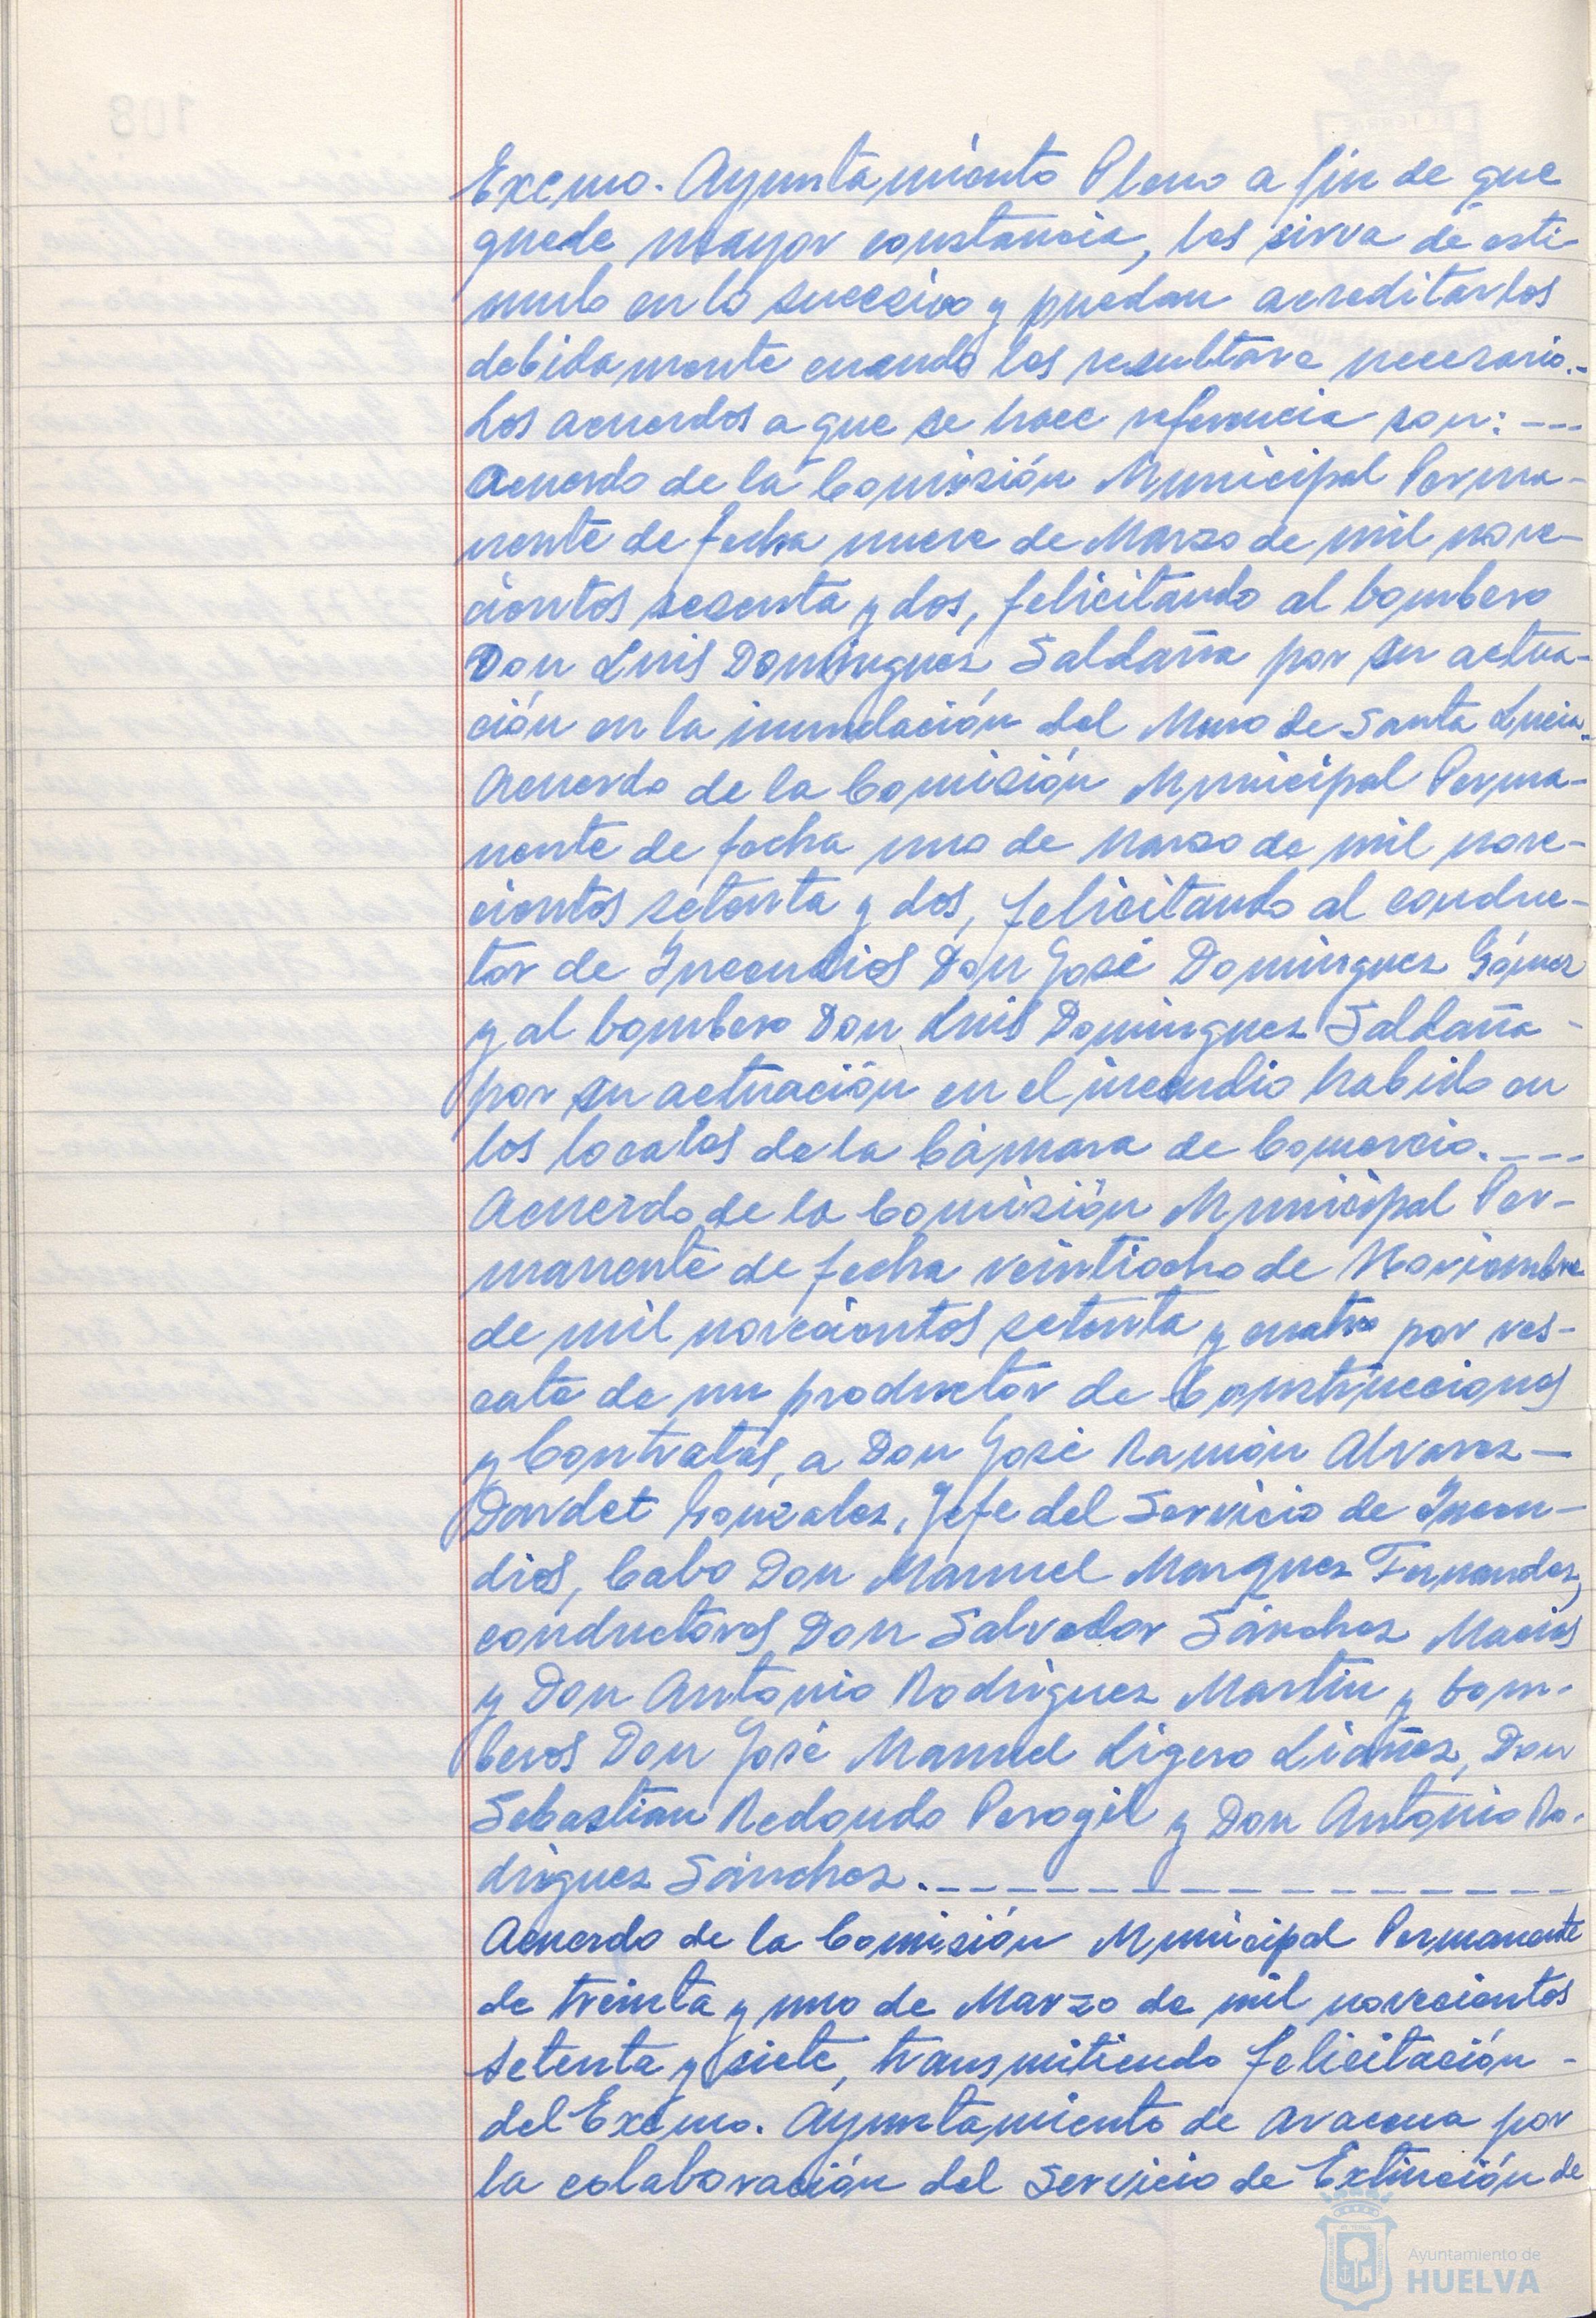 Excmo. Ayuntamiento Pleno a fin de que
quede mayor constancia, les sirva de estí-
mulo en lo sucesivo y puedan acreditarlos
debidamente cuando les resultare necesario.-
Los acuerdos a que se hace referencia son: ---
Acuerdo de la Comisión Municipal Perma-
nente de fecha nueve de Marzo de mil nove-
cientos sesenta y dos, felicitando al bombero
Don Luis Dominguez Saldaña por su actua-
ción en la inundación del Muro de Santa Lucia.-
Acuerdo de la Comisión Municipal Perma-
nente de fecha uno de Marzo de mil nove-
cientos setenta y dos, felicitando al conduc-
tor de Incendios Don José Dominguez Gómez
y al bombero Don Luis Dominguez Saldaña -
por su actuación en el incendio habido en
los locales de la Cámara de Comercio.---
Acuerdo de la Comisión Municipal Per-
manente de fecha veintiocho de Noviembre
de mil novecientos setenta y cuatro por res-
cate de un productor de Construcciones
y Contratas, a Don José Ramón Alvarez-
Dardet González, Jefe del Servicio de Incen-
dios, Cabo Don Manuel Marquez Fernandez,
conductores Don Salvador Sánchez Macias
y Don Antonio Rodriguez Martin y bom-
beros Don José Manuel Ligero Liáñez, Don
Sebastian Redondo Perogil y Don Antonio Ro-
driguez Sánchez.---------------
Acuerdo de la Comisión Municipal Permanente
de treinta y uno de Marzo de mil novecientos
setenta y siete, transmitiendo felicitación -
del Excmo. Ayuntamiento de Aracena por
la colaboración del Servicio de Extinción de
Ayuntamiento de
HUELVA